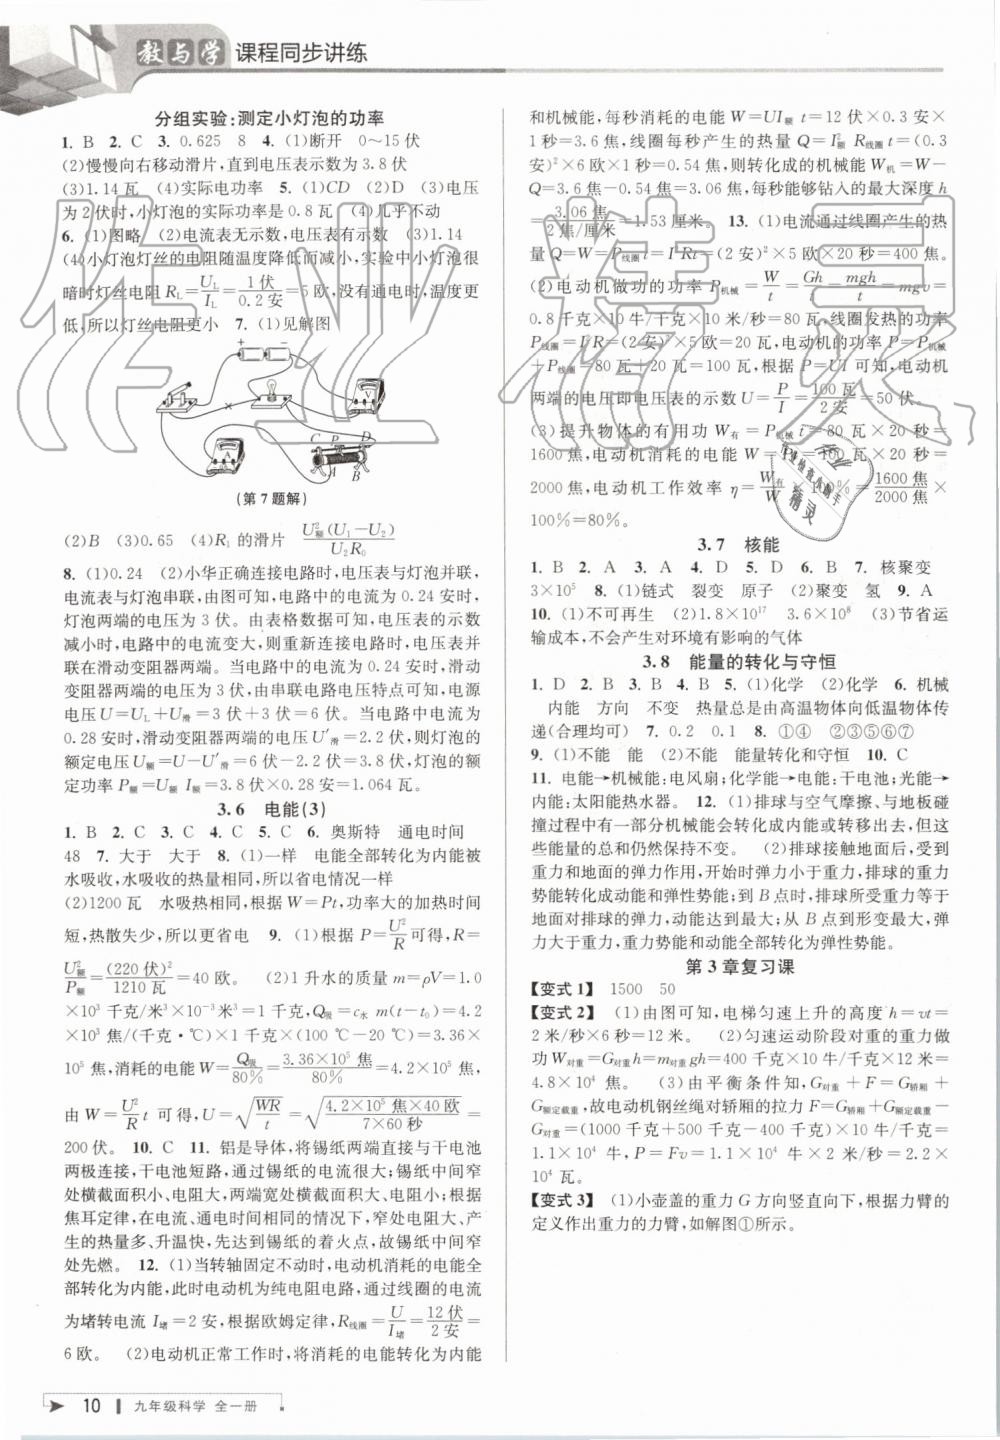 教与学 课程同步讲练
分组实验:测定小灯泡的功率
1. B 2. C 3. 0.625 8 4. (1)断开 0～15伏
(2)慢慢向右移动滑片,直到电压表示数为3.8伏
(3)1.14瓦 (4)实际电功率 5. (1)CD (2)D (3)电压
为2伏时,小灯泡的实际功率是0.8瓦 (4)几乎不动
6. (1)图略 (2)电流表无示数,电压表有示数 (3)1.14
(4)小灯泡灯丝的电阻随温度降低而减小,实验中小灯泡很
暗时灯丝电阻R_L=U_L/I_L=1伏/0.2安=5欧,没有通电时,温度更
低,所以灯丝电阻更小 7. (1)见解图
+ −
V
C P D
A B
(第7题解)
(2)B (3)0.65 (4)R₁的滑片 U²额(U₁−U₂)/U₂R₀
8. (1)0.24 (2)小华正确连接电路时,电压表与灯泡并联,
电流表与灯泡串联,由图可知,电路中的电流为0.24安时,
灯泡两端的电压为3伏。由表格数据可知,电压表的示数
减小时,电路中的电流变大,则重新连接电路后,电压表并
联在滑动变阻器两端。当电路中的电流为0.24安时,滑动
变阻器两端的电压为3伏,由串联电路电压特点可知,电源
电压U=U_L+U滑=3伏+3伏=6伏。当电路中电流为
0.28安时,滑动变阻器两端的电压U′滑=2.2伏,则灯泡的
额定电压U额=U−U′滑=6伏−2.2伏=3.8伏,灯泡的额
定功率P额=U额 I额=3.8伏×0.28安=1.064瓦。
3.6 电能(3)
1. B 2. C 3. C 4. C 5. C 6. 奥斯特 通电时间
48 7. 大于 大于 8. (1)一样 电能全部转化为内能被
水吸收,水吸收的热量相同,所以省电情况一样
(2)1200瓦 水吸热相同,根据W=Pt,功率大的加热时间
短,热散失少,所以更省电 9. (1)根据P=U²/R可得,R=
U²额/P额=(220伏)²/1210瓦=40欧。 (2)1升水的质量m=ρV=1.0
×10³千克/米³×10⁻³米³=1千克,Q吸=c水 m(t−t₀)=4.2
×10³焦/(千克·℃)×1千克×(100℃−20℃)=3.36×
10⁵焦,消耗的电能W=Q吸/80%=3.36×10⁵焦/80%=4.2×10⁵焦,
由W=U²/R t可得,U=√(WR/t)=√(4.2×10⁵焦×40欧/7×60秒)=
200伏。 10. C 11. 铝是导体,将锡纸两端直接与干电池
两极连接,干电池短路,通过锡纸的电流很大;锡纸中间窄
处横截面积小、电阻大,两端宽处横截面积大、电阻小;根据
焦耳定律,在电流、通电时间相同的情况下,窄处电阻大、产
生的热量多、升温快,先达到锡纸的着火点,故锡纸中间窄
处先燃。 12. (1)当转轴固定不动时,电动机消耗的电能全
部转化为内能,此时电动机为纯电阻电路,通过线圈的电流
为堵转电流I堵=2安,根据欧姆定律,R线圈=U/I堵=12伏/2安=
6欧。 (2)电动机正常工作时,将消耗的电能转化为内能
和机械能,每秒消耗的电能W=UI额 t=12伏×0.3安×
1秒=3.6焦,线圈每秒产生的热量Q=I²额 R线圈t=(0.3
安)²×6欧×1秒=0.54焦,则转化成的机械能W机=W−
Q=3.6焦−0.54焦=3.06焦,每秒能够钻入的最大深度h
=3.06焦/2焦/厘米=1.53厘米。 13. (1)电流通过线圈产生的热
量Q=W=P线圈t=I²Rt=(2安)²×5欧×20秒=400焦。
(2)电动机做功的功率P机械=W/t=Gh/t=mgh/t=mgv=
0.8千克×10牛/千克×10米/秒=80瓦,线圈发热的功率
P线圈=I²R=(2安)²×5欧=20瓦,电动机的功率P=P机械
+P线圈=80瓦+20瓦=100瓦,根据P=UI可知,电动机
两端的电压即电压表的示数U=P/I=100瓦/2安=50伏。
(3)提升物体的有用功W有=P机械t=80瓦×20秒=
1600焦,电动机消耗的电能W=Pt=100瓦×20秒=
2000焦,电动机工作效率η=W有/W×100%=1600焦/2000焦×
100%=80%。
3.7 核能
1. B 2. A 3. A 4. D 5. D 6. B 7. 核聚变
3×10⁵ 8. (1)链式 裂变 原子 (2)聚变 氢 9. A
10. (1)不可再生 (2)1.8×10¹⁷ 3.6×10⁸ (3)节省运
输成本,不会产生对环境有影响的气体
3.8 能量的转化与守恒
1. D 2. B 3. B 4. B 5. (1)化学 (2)化学 6. 机械
内能 方向 不变 热量总是由高温物体向低温物体传
递(合理均可) 7. 0.2 0.1 8. ①④ ②③⑤⑥⑦
9. (1)不能 能 (2)不能 能量转化和守恒 10. C
11. 电能→机械能:电风扇;化学能→电能:干电池;光能→
内能:太阳能热水器。 12. (1)排球与空气摩擦、与地板碰
撞过程中有一部分机械能会转化成内能或转移出去,但这
些能量的总和仍然保持不变。 (2)排球接触地面后,受到
重力和地面的弹力作用,开始时弹力小于重力,排球的重力
势能转化成动能和弹性势能;到B点时,排球所受重力等于
地面对排球的弹力,动能达到最大;从B点到形变最大,弹
力大于重力,重力势能和动能全部转化为弹性势能。
第3章复习课
【变式1】 1500 50
【变式2】 (1)由图可知,电梯匀速上升的高度h=vt=
2米/秒×6秒=12米。 (2)匀速运动阶段对重的重力做
功W对重=G对重h=m对重gh=400千克×10牛/千克×12米=
4.8×10⁴焦。 (3)由平衡条件知,G对重+F=G轿厢+
G额定载重,故电动机钢丝绳对轿厢的拉力F=G轿厢+G额定载重−
G对重=(1000千克+500千克−400千克)×10牛/千克=
1.1×10⁴牛,P=Fv=1.1×10⁴牛×2米/秒=2.2×
10⁴瓦。
【变式3】 (1)小壶盖的重力G方向竖直向下,根据力臂的
定义作出重力的力臂,如解图①所示。
10 九年级科学 全一册
作业精灵